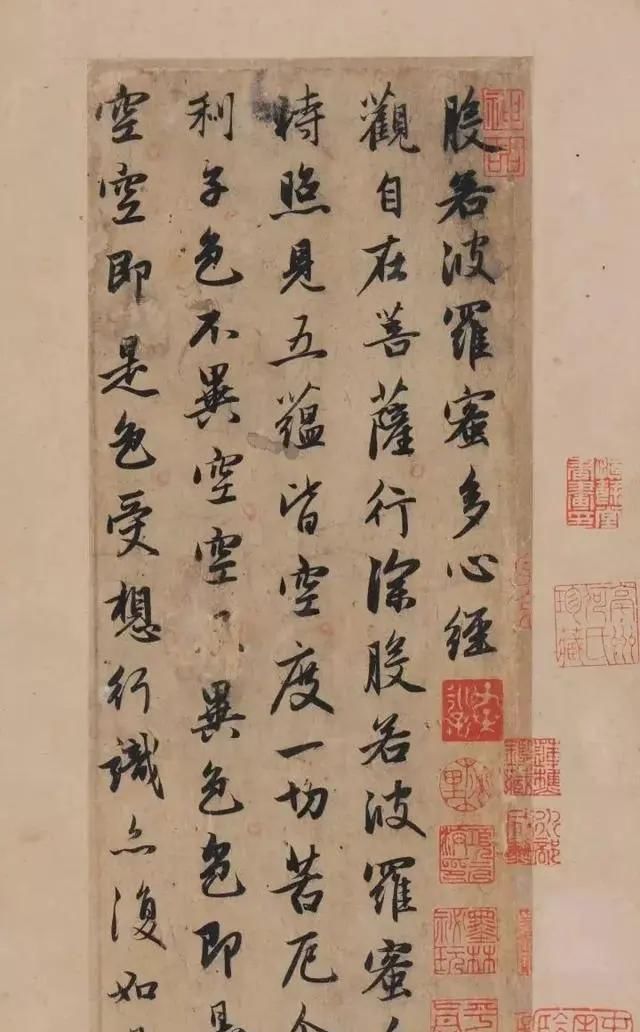 般若波羅蜜多心經
觀自在菩薩行深般若波羅蜜
時照見五蘊皆空度一切苦厄
利子色不異空空異色色即是
空空即是色受想行識亦復如
墨林祕玩